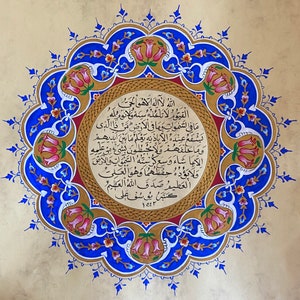 الله لا اله الا هو الحي
القيوم لا تأخذه سنة ولا نوم له
ما في السموات وما في الارض من ذا الذي
يشفع عنده الا باذنه يعلم ما بين ايديهم
وما خلفهم ولا يحيطون بشيء من علمه
الا بما شاء وسع كرسيه السموات والارض
ولا يؤده حفظهما وهو العلي
العظيم صدق الله العظيم